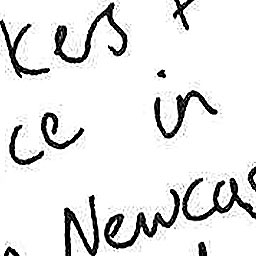 kers
ce in
Newcas